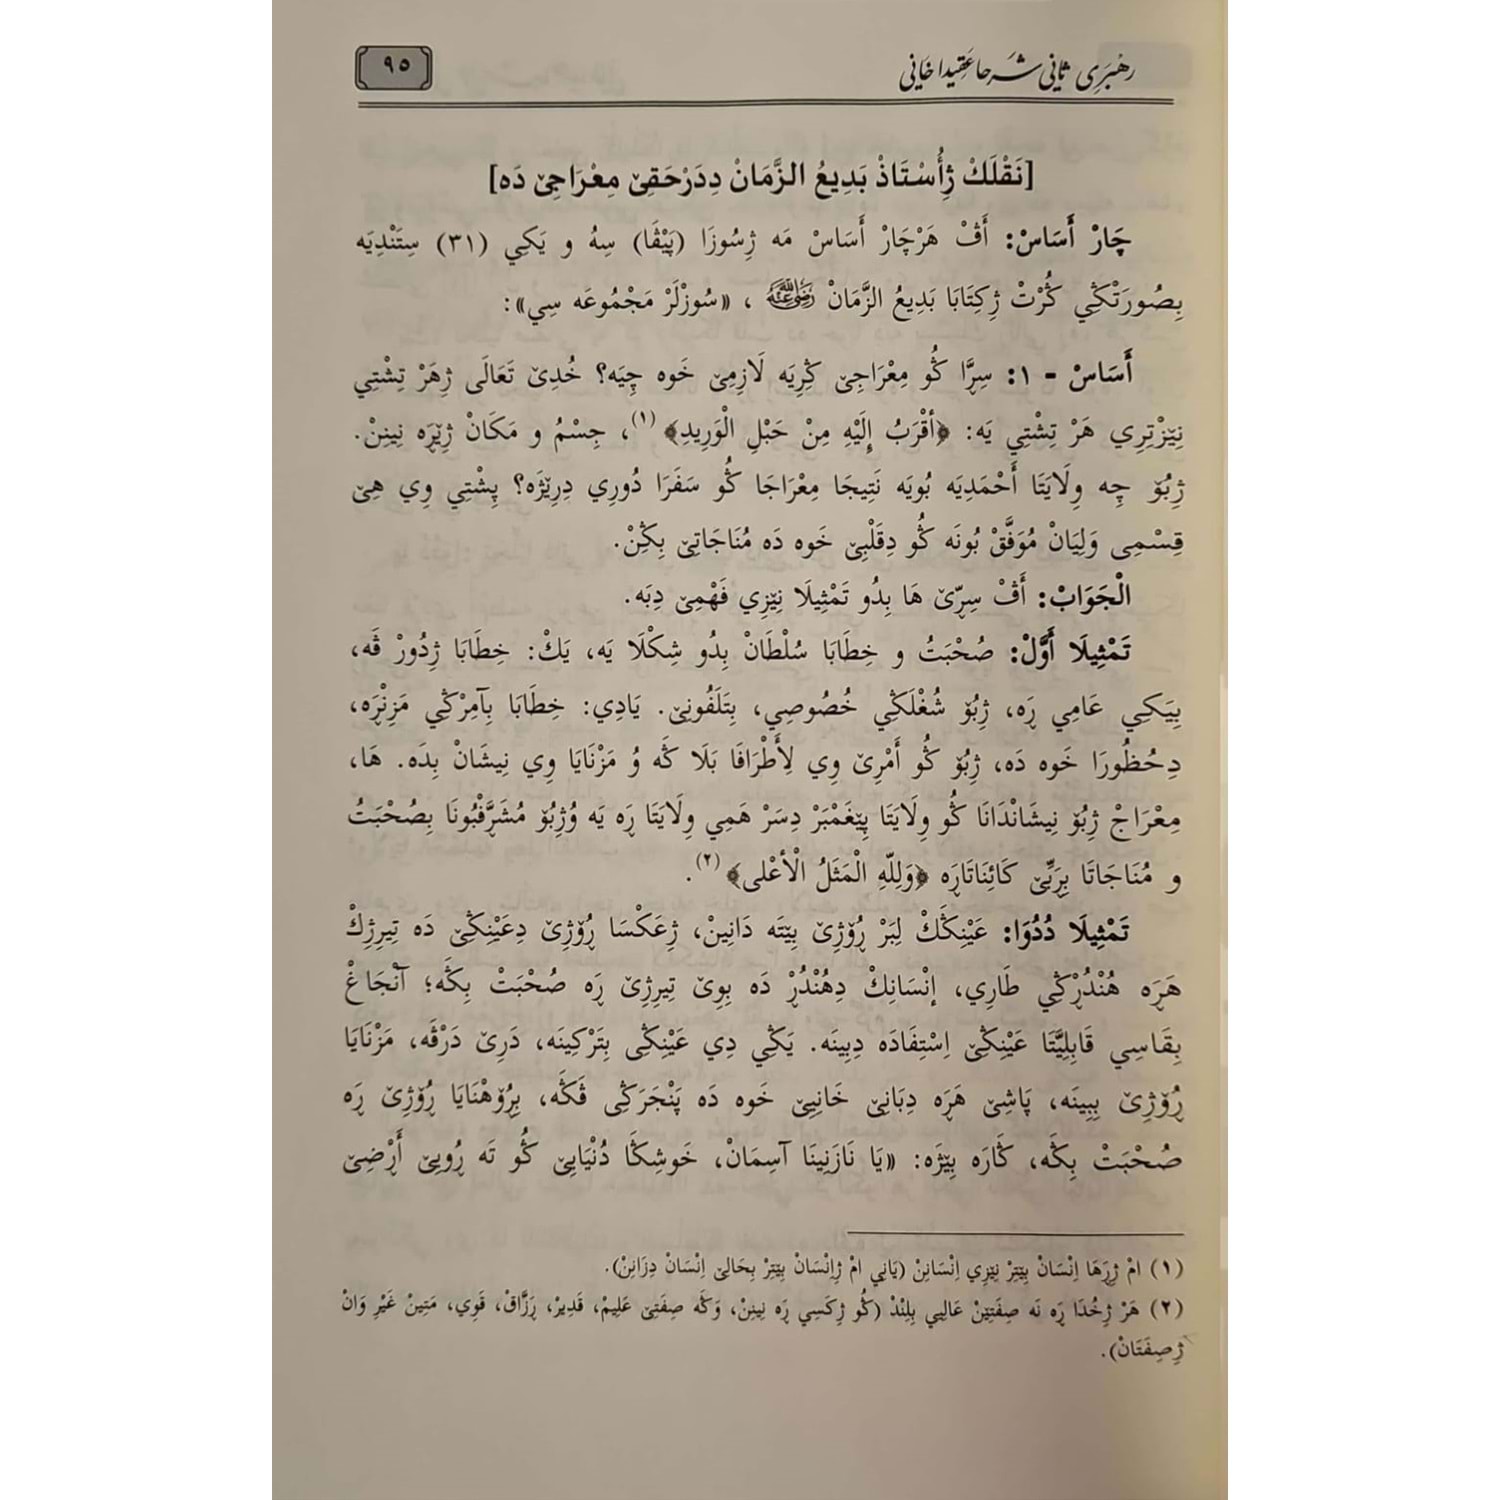 رهبري ثاني شرحا عقيدا خاني
٩٥
[نَقْلَكْ ژِأُسْتَاذْ بَدِيعُ الزَّمَانْ دِدَرْحَقِىٰ مِعْرَاجِىٰ دَه]
چَارْ أَسَاسْ: أَڤْ هَرْچَارْ أَسَاسْ مَه ژِسُوزَا (پَيْڤَا) سِهْ و يَكِي (٣١) سِتَنْدِيَه
بِصُورَتْكِي كُرْتْ ژِكِتَابَا بَدِيعُ الزَّمَانْ رضي الله عنه، «سُوزْلَرْ مَجْمُوعَه سِي»:
أَسَاسْ - ١: سِرَّا كُو مِعْرَاجِىٰ كِرِيَه لَازِمِىٰ خَوه چِيَه؟ خُدِىٰ تَعَالَى ژِهَرْ تِشْتِي
نِيزْتِرِي هَرْ تِشْتِي يَه: ﴿أقْرَبُ إِلَيْهِ مِنْ حَبْلِ الْوَرِيدِ﴾(١)، جِسْمُ و مَكَانْ ژِيرَه نِينِنْ.
ژِبُوٓ چِه وِلَايَتَا أَحْمَدِيَه بُويَه نَتِيجَا مِعْرَاجَا كُو سَفَرَا دُورِي دِرِيژَه؟ پِشْتِي وِي هِىٰ
قِسْمِى وَلِيَانْ مُوَفَّقْ بُونَه كُو دِقَلْبِىٰ خَوه دَه مُنَاجَاتِىٰ بِكِنْ.
الْجَوَابْ: أَڤْ سِرِّىٰ هَا بِدُو تَمْثِيلَا نِيزِي فَهْمِىٰ دِبَه.
تَمْثِيلَا أَوَّلْ: صُحْبَتُ و خِطَابَا سُلْطَانْ بِدُو شِكْلَا يَه، يَكْ: خِطَابَا ژِدُورْ ڤَه،
بِيَكِي عَامِي رَه، ژِبُوٓ شُغْلَكِي خُصُوصِي، بِتَلَفُونِىٰ. يَادِي: خِطَابَا بِآمِرْكِي مَزِنْرَه،
دِحُظُورَا خَوه دَه، ژِبُوٓ كُو أَمْرِىٰ وِي لِأَطْرَافَا بَلَا كَه وُ مَزْنَايَا وِي نِيشَانْ بِدَه. هَا،
مِعْرَاجْ ژِبُوٓ نِيشَانْدَانَا كُو وِلَايَتَا پِيغَمْبَرْ دِسَرْ هَمِي وِلَايَتَا رَه يَه وُژِبُوٓ مُشَرَّفْبُونَا بِصُحْبَتُ
و مُنَاجَاتَا بِرَبِّىٰ كَائِنَاتَارَه ﴿وَلِلّهِ الْمَثَلُ الْأعْلى﴾(٢).
تَمْثِيلَا دُدُوَا: عَيْنِكَكْ لِبَرْ رُوٓژِىٰ بِيتَه دَانِينْ، ژِعَكْسَا رُوٓژِىٰ دِعَيْنِكِىٰ دَه تِيرِژِكْ
هَرَه هُنْدُرْكِي طَارِي، إنْسَانِكْ دِهُنْدُرْ دَه بِوِىٰ تِيرِژِىٰ رَه صُحْبَتْ بِكَه؛ آنْجَاغْ
بِقَاسِي قَابِلِيَّتَا عَيْنِكِىٰ اِسْتِفَادَه دِبِينَه. يَكِي دِي عَيْنِكِىٰ بِتَرْكِينَه، دَرِىٰ دَرْڤَه، مَزْنَايَا
رُوٓژِىٰ بِبِينَه، پَاشِىٰ هَرَه دِبَانِىٰ خَانِيىٰ خَوه دَه پَنْجَرَكِى ڤَكَه، بِرُوٓهْنَايَا رُوٓژِىٰ رَه
صُحْبَتْ بِكَه، كَارَه بِيژَه: «يَا نَازَنِينَا آسِمَانْ، خَوشِكَا دُنْيَايِىٰ كُو تَه رُويِىٰ أَرْضِىٰ
(١) امْ ژِرَهَا اِنْسَانْ بِيتِرْ نِيزِي اِنْسَانِنْ (يَانِي امْ ژِاِنْسَانْ بِيتِرْ بِحَالِىٰ اِنْسَانْ دِزَانِنْ).
(٢) هَرْ ژِخُدَا رَه نَه صِفَتِينْ عَالِيي بِلِنْدْ (كُو ژِكَسِي رَه نِينِنْ، وَكَه صِفَتِىٰ عَلِيمْ، قَدِيرْ، رَزَّاقْ، قَوِي، مَتِينْ غَيْرِ وَانْ
ژِصِفَتَانْ).